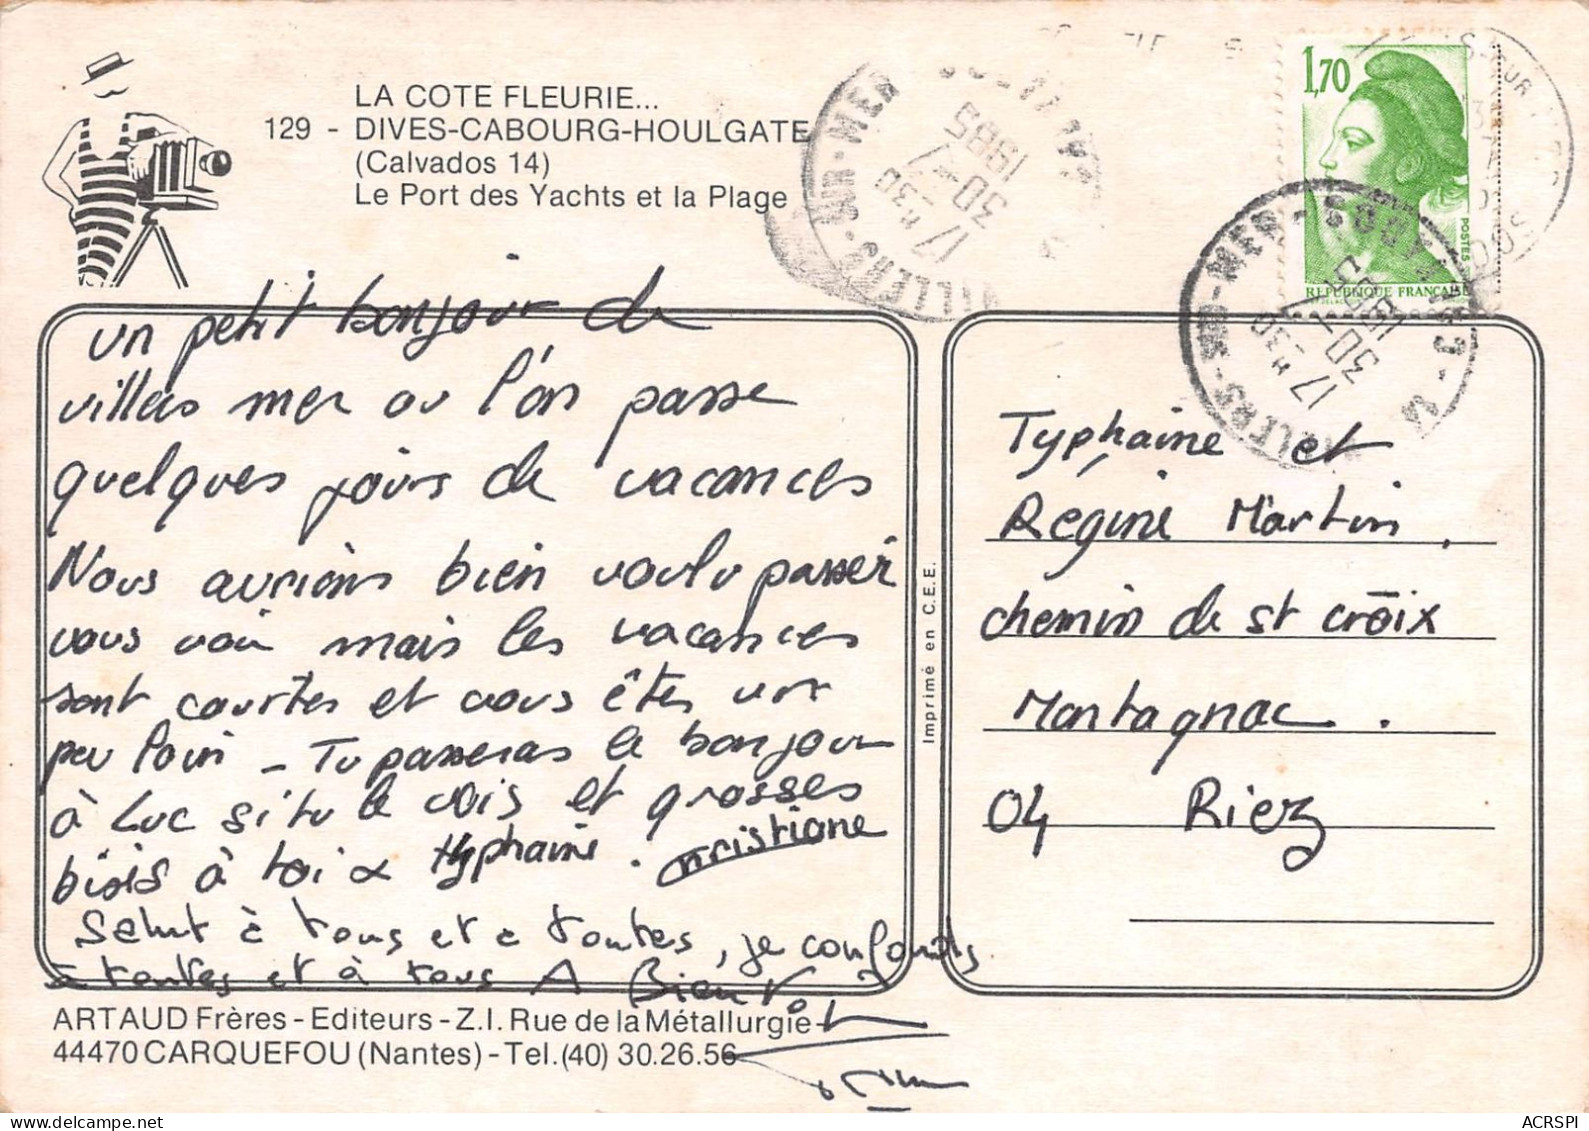 LA COTE FLEURIE...
129 - DIVES-CABOURG-HOULGATE
(Calvados 14)
Le Port des Yachts et la Plage
un petit bonjour de
villers mer ou l'on passe
quelques jours de vacances
Nous aurions bien voulu passer
vous voir mais les vacances
sont courtes et vous êtes un
peu loin - Tu passeras le bonjour
à Luc si tu le vois et grosses
bises à toi & Typhaine. Christiane
Salut à tous et à toutes, je confonds
à toutes et à tous A Bientôt
ARTAUD Frères - Editeurs - Z.I. Rue de la Métallurgie
44470 CARQUEFOU (Nantes) - Tel. (40) 30.26.56
Imprimé en C.E.E.
VILLERS-SUR-MER
17 H 30
30 -7
1985
1,70
POSTES
REPUBLIQUE FRANCAISE
VILLERS-SUR-MER
17 H 30
30 -7
1985
Typhaine et
Régine Martin,
chemin de st croix
Montagnac.
04 Riez
ACRSPI